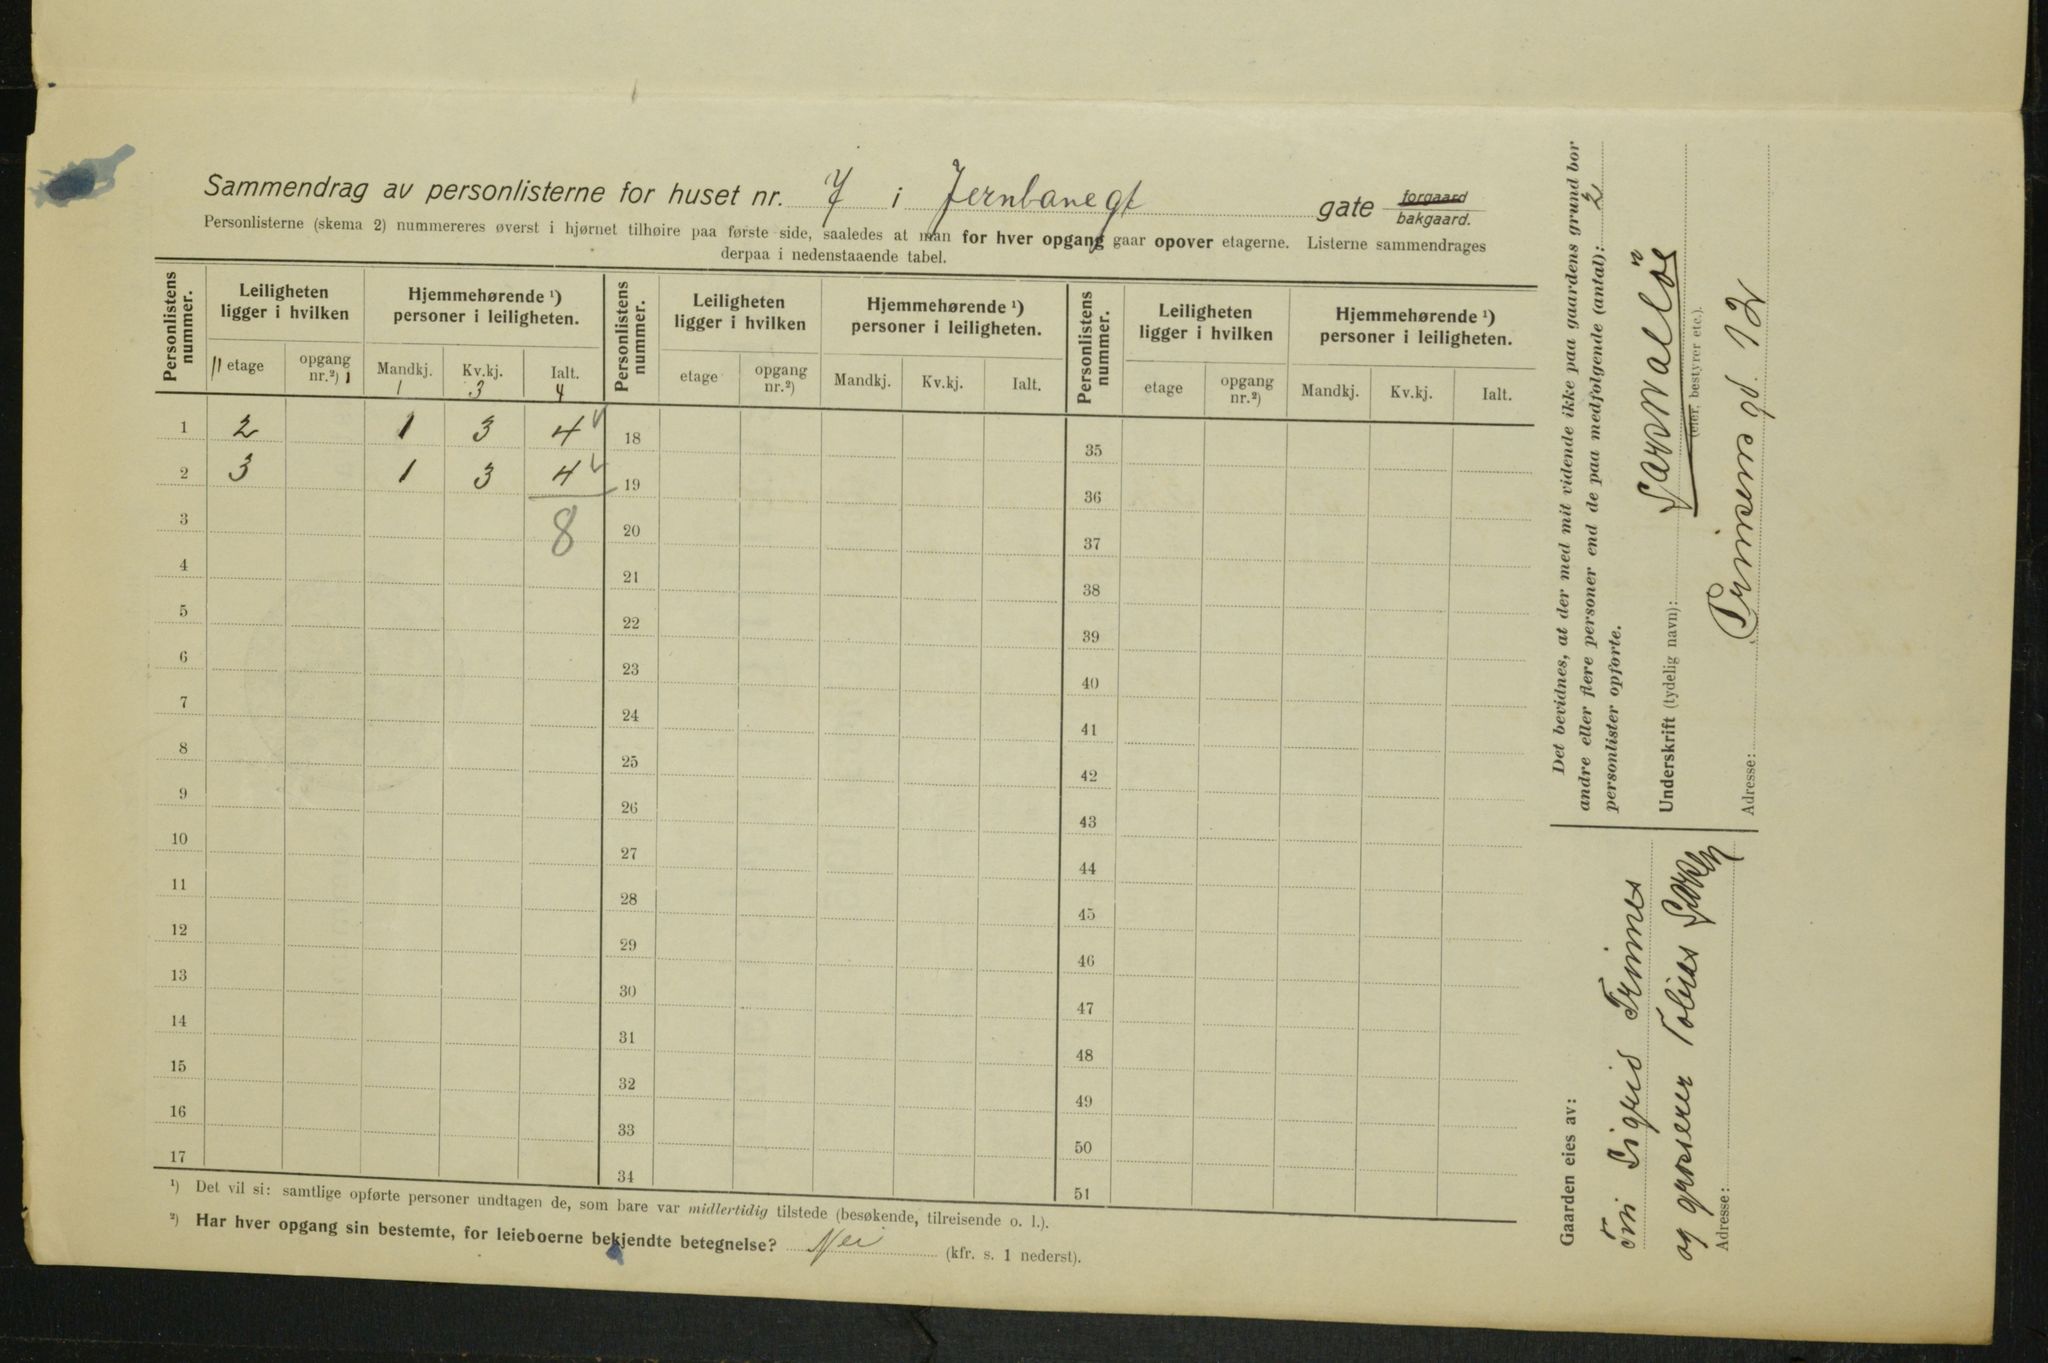 Sammendrag av personlisterne for huset nr. 7 i Jernbanegt gate forgaard bakgaard.
Personlisterne (skema 2) nummereres øverst i hjørnet tilhøire paa første side, saaledes at man for hver opgang gaar opover etagerne. Listerne sammendrages
derpaa i nedenstaaende tabel.
Personlistens nummer. Leiligheten ligger i hvilken Hjemmehørende ¹) personer i leiligheten. Personlistens nummer. Leiligheten ligger i hvilken Hjemmehørende ¹) personer i leiligheten. Personlistens nummer. Leiligheten ligger i hvilken Hjemmehørende ¹) personer i leiligheten.
etage opgang nr.²) Mandkj. Kv.kj. Ialt. etage opgang nr.²) Mandkj. Kv.kj. Ialt. etage opgang nr.²) Mandkj. Kv.kj. Ialt.
1 3 4
1 2 1 3 4 18 35
2 3 1 3 4 19 36
3 8 20 37
4 21 38
5 22 39
6 23 40
7 24 41
8 25 42
9 26 43
10 27 44
11 28 45
12 29 46
13 30 47
14 31 48
15 32 49
16 33 50
17 34 51
¹) Det vil si: samtlige opførte personer undtagen de, som bare var midlertidig tilstede (besøkende, tilreisende o. l.).
²) Har hver opgang sin bestemte, for leieboerne bekjendte betegnelse? Nei (kfr. s. 1 nederst).
Det bevidnes, at der med mit vidende ikke paa gaardens grund bor
andre eller flere personer end de paa medfølgende (antal): 2
personlister opførte.
Underskrift (tydelig navn):
(eier, bestyrer etc.).
Adresse: Prinsens gt. 12
Gaarden eies av:
Sigrid Trinnes
og grosserer Tobias
Adresse: